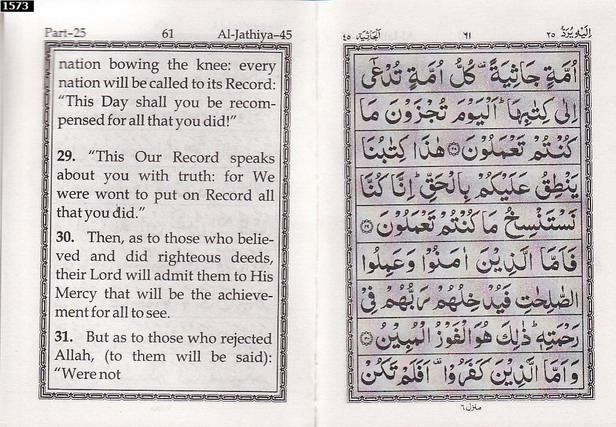 1573
Part-25 61 Al-Jathiya-45
nation bowing the knee: every
nation will be called to its Record:
“This Day shall you be recom-
pensed for all that you did!”
29. “This Our Record speaks
about you with truth: for We
were wont to put on Record all
that you did.”
30. Then, as to those who belie-
ved and did righteous deeds,
their Lord will admit them to His
Mercy that will be the achieve-
ment for all to see.
31. But as to those who rejected
Allah, (to them will be said):
“Were not
اِلَيْهِ يُرَدُّ ٢٥ ٦١ الجاثية ٤٥
اُمَّةٍ جَاثِيَةً ۫ كُلُّ اُمَّةٍ تُدْعٰٓى
اِلٰى كِتٰبِهَا ؕ اَلْيَوْمَ تُجْزَوْنَ مَا
كُنْتُمْ تَعْمَلُوْنَ ﴿٢٨﴾ هٰذَا كِتٰبُنَا
يَنْطِقُ عَلَيْكُمْ بِالْحَقِّ ؕ اِنَّا كُنَّا
نَسْتَنْسِخُ مَا كُنْتُمْ تَعْمَلُوْنَ ﴿٢٩﴾
فَاَمَّا الَّذِيْنَ اٰمَنُوْا وَعَمِلُوا
الصّٰلِحٰتِ فَيُدْخِلُهُمْ رَبُّهُمْ فِيْ
رَحْمَتِهٖ ؕ ذٰلِكَ هُوَ الْفَوْزُ الْمُبِيْنُ ﴿٣٠﴾
وَاَمَّا الَّذِيْنَ كَفَرُوْا ۫ اَفَلَمْ تَكُنْ
منزل ٦